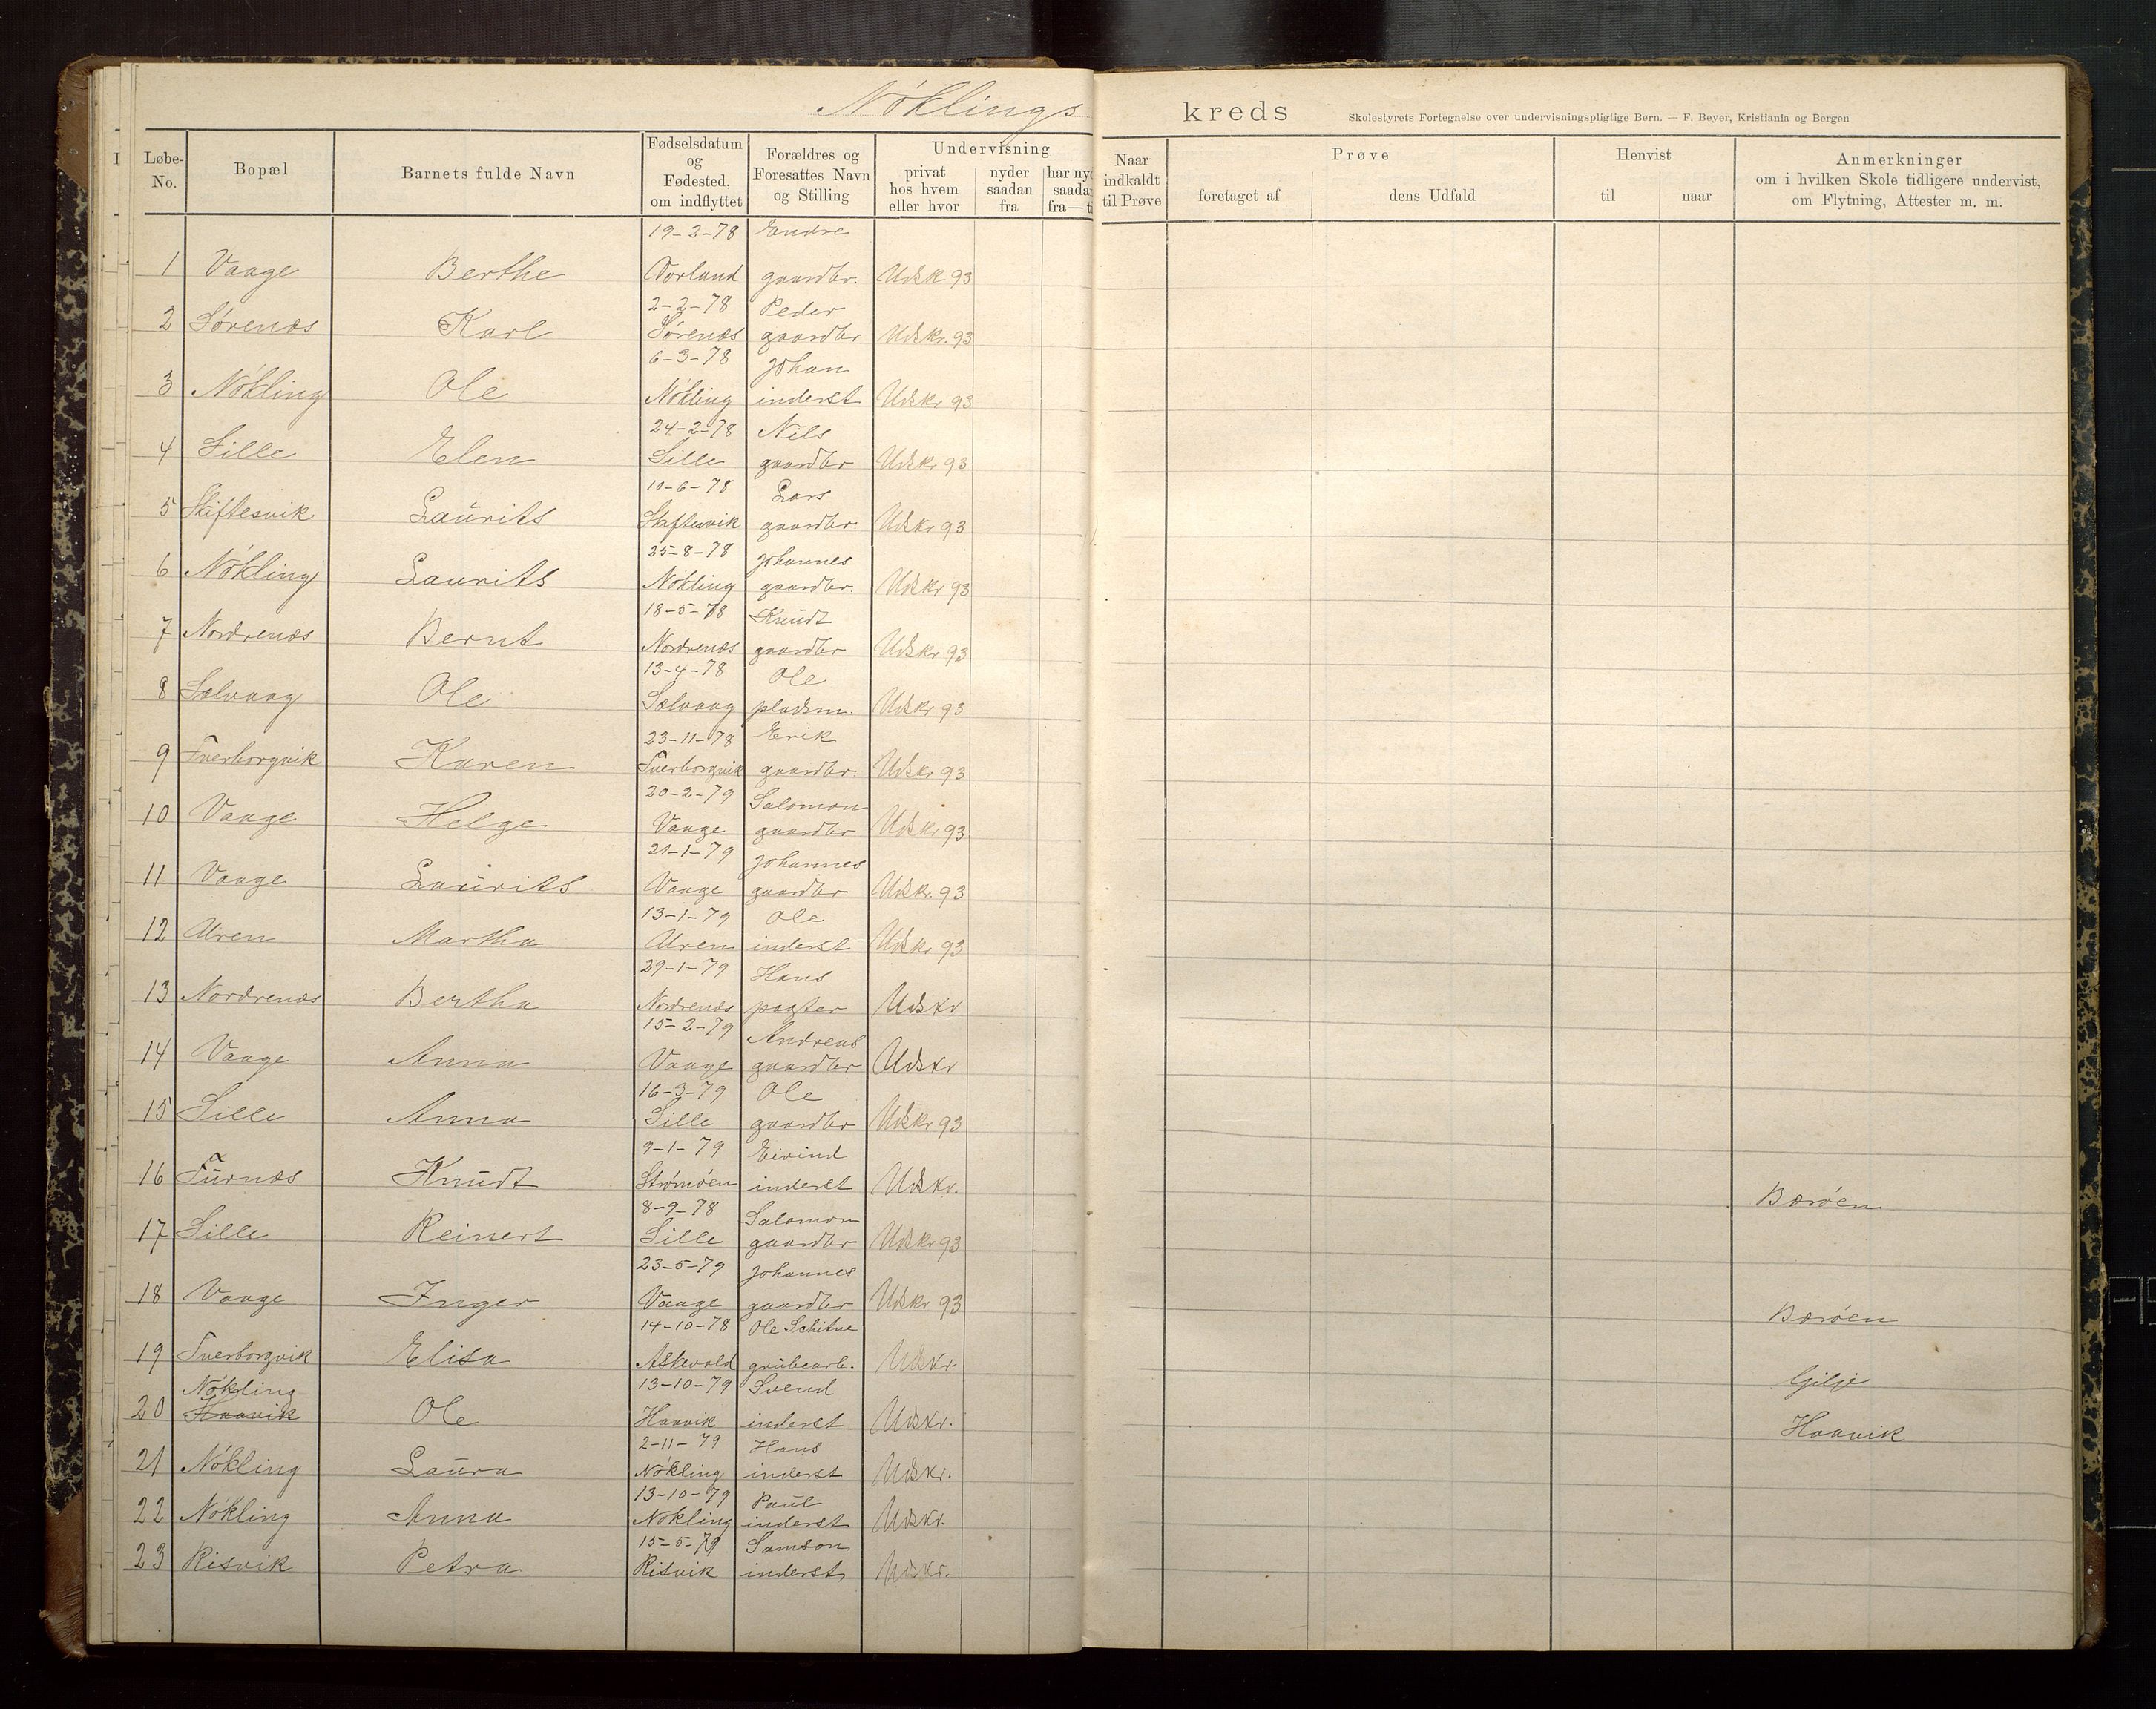 Nøklings kreds
Skolestyrets Fortegnelse over undervisningspligtige Børn. — F. Beyer, Kristiania og Bergen
Løbe-No. Bopæl Barnets fulde Navn Fødselsdatum og Fødested, om indflyttet Forældres og Foresattes Navn og Stilling Undervisning privat hos hvem eller hvor nyder saadan fra har saadan fra—
Naar indkaldt til Prøve Prøve foretaget af dens Udfald Henvist til naar Anmerkninger om i hvilken Skole tidligere undervist, om Flytning, Attester m. m.
19-2-78 Endre
1 Vaage Berthe Vorland gaardbr. Udskr 93
2-2-78 Peder
2 Sørenæs Karl Sørenæs gaardbr Udskr. 93
6-3-78 Johan
3 Nøkling Ole Nøkling inderst Udskr 93
24-2-78 Nils
4 Lille Elen Lille gaardbr Udskr 93
10-6-78 Lars
5 Skiftesvik Laurits Skiftesvik gaardbr. Udskr 93
25-8-78 Johannes
6 Nøkling Laurits Nøkling gaardbr. Udskr 93
18-5-78 Knudt
7 Nordrenæs Bernt Nordrenæs gaardbr Udskr 93
13-4-78 Ole
8 Selvaag Ole Selvaag pladsm. Udskr 93
23-11-78 Erik
9 Tverborgvik Karen Tverborgvik gaardbr. Udskr 93
20-2-79 Salomon
10 Vaage Helge Vaage gaardbr Udskr 93
21-1-79 Johannes
11 Vaage Laurits Vaage gaardbr Udskr. 93
13-1-79 Ole
12 Uren Martha Uren inderst Udskr 93
29-1-79 Hans
13 Nordrenæs Bertha Nordrenæs pagter Udskr
15-2-79 Andreas
14 Vaage Anna Vaage gaardbr Udskr
16-3-79 Ole
15 Lille Anna Lille gaardbr Udskr 93
9-1-79 Eivind
16 Turnæs Knudt Strømøen inderst Udskr. Barøen
8-9-78 Salomon
17 Lille Reinert Lille gaardbr Udskr 93
23-5-79 Johannes
18 Vaage Inger Vaage gaardbr Udskr 93 Barøen
14-10-78 Ole Schitne
19 Tverborgvik Elisa Askevold grubearb. Udskr. Gilje
Nøkling 13-10-79 Svend
20 Haavik Ole Haavik inderst Udskr. Haavik
2-11-79 Hans
21 Nøkling Laura Nøkling inderst Udskr.
13-10-79 Paul
22 Nøkling Anna Nøkling inderst Udskr.
15-5-79 Samson
23 Risvik Petra Risvik inderst Udskr.